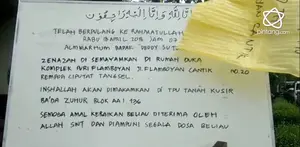 إِنَّا لِلَّهِ وَإِنَّا إِلَيْهِ رَاجِعُونَ
TELAH BERPULANG KE RAHMATULLAH
RABU
JAM 07
ALMARHUM BAPAK DEDDY SUT
ZENAZAH DI SEMAYAMKAN DI RUMAH DUKA
KOMPLEK AVRI FLAMBOYAN JL FLAMBOYAN CANTIK NO.20
REMPOA CIPUTAT TANGSEL.
INSHALLAH AKAN DIMAKAMKAN DI TPU TANAH KUSIR
BA'DA ZUHUR BLOK AA1 196
SEMOGA AMAL KEBAIKAN BELIAU DITERIMA OLEH
ALLAH SWT DAN DIAMPUNI SEGALA DOSA BELIAU
bintang.com